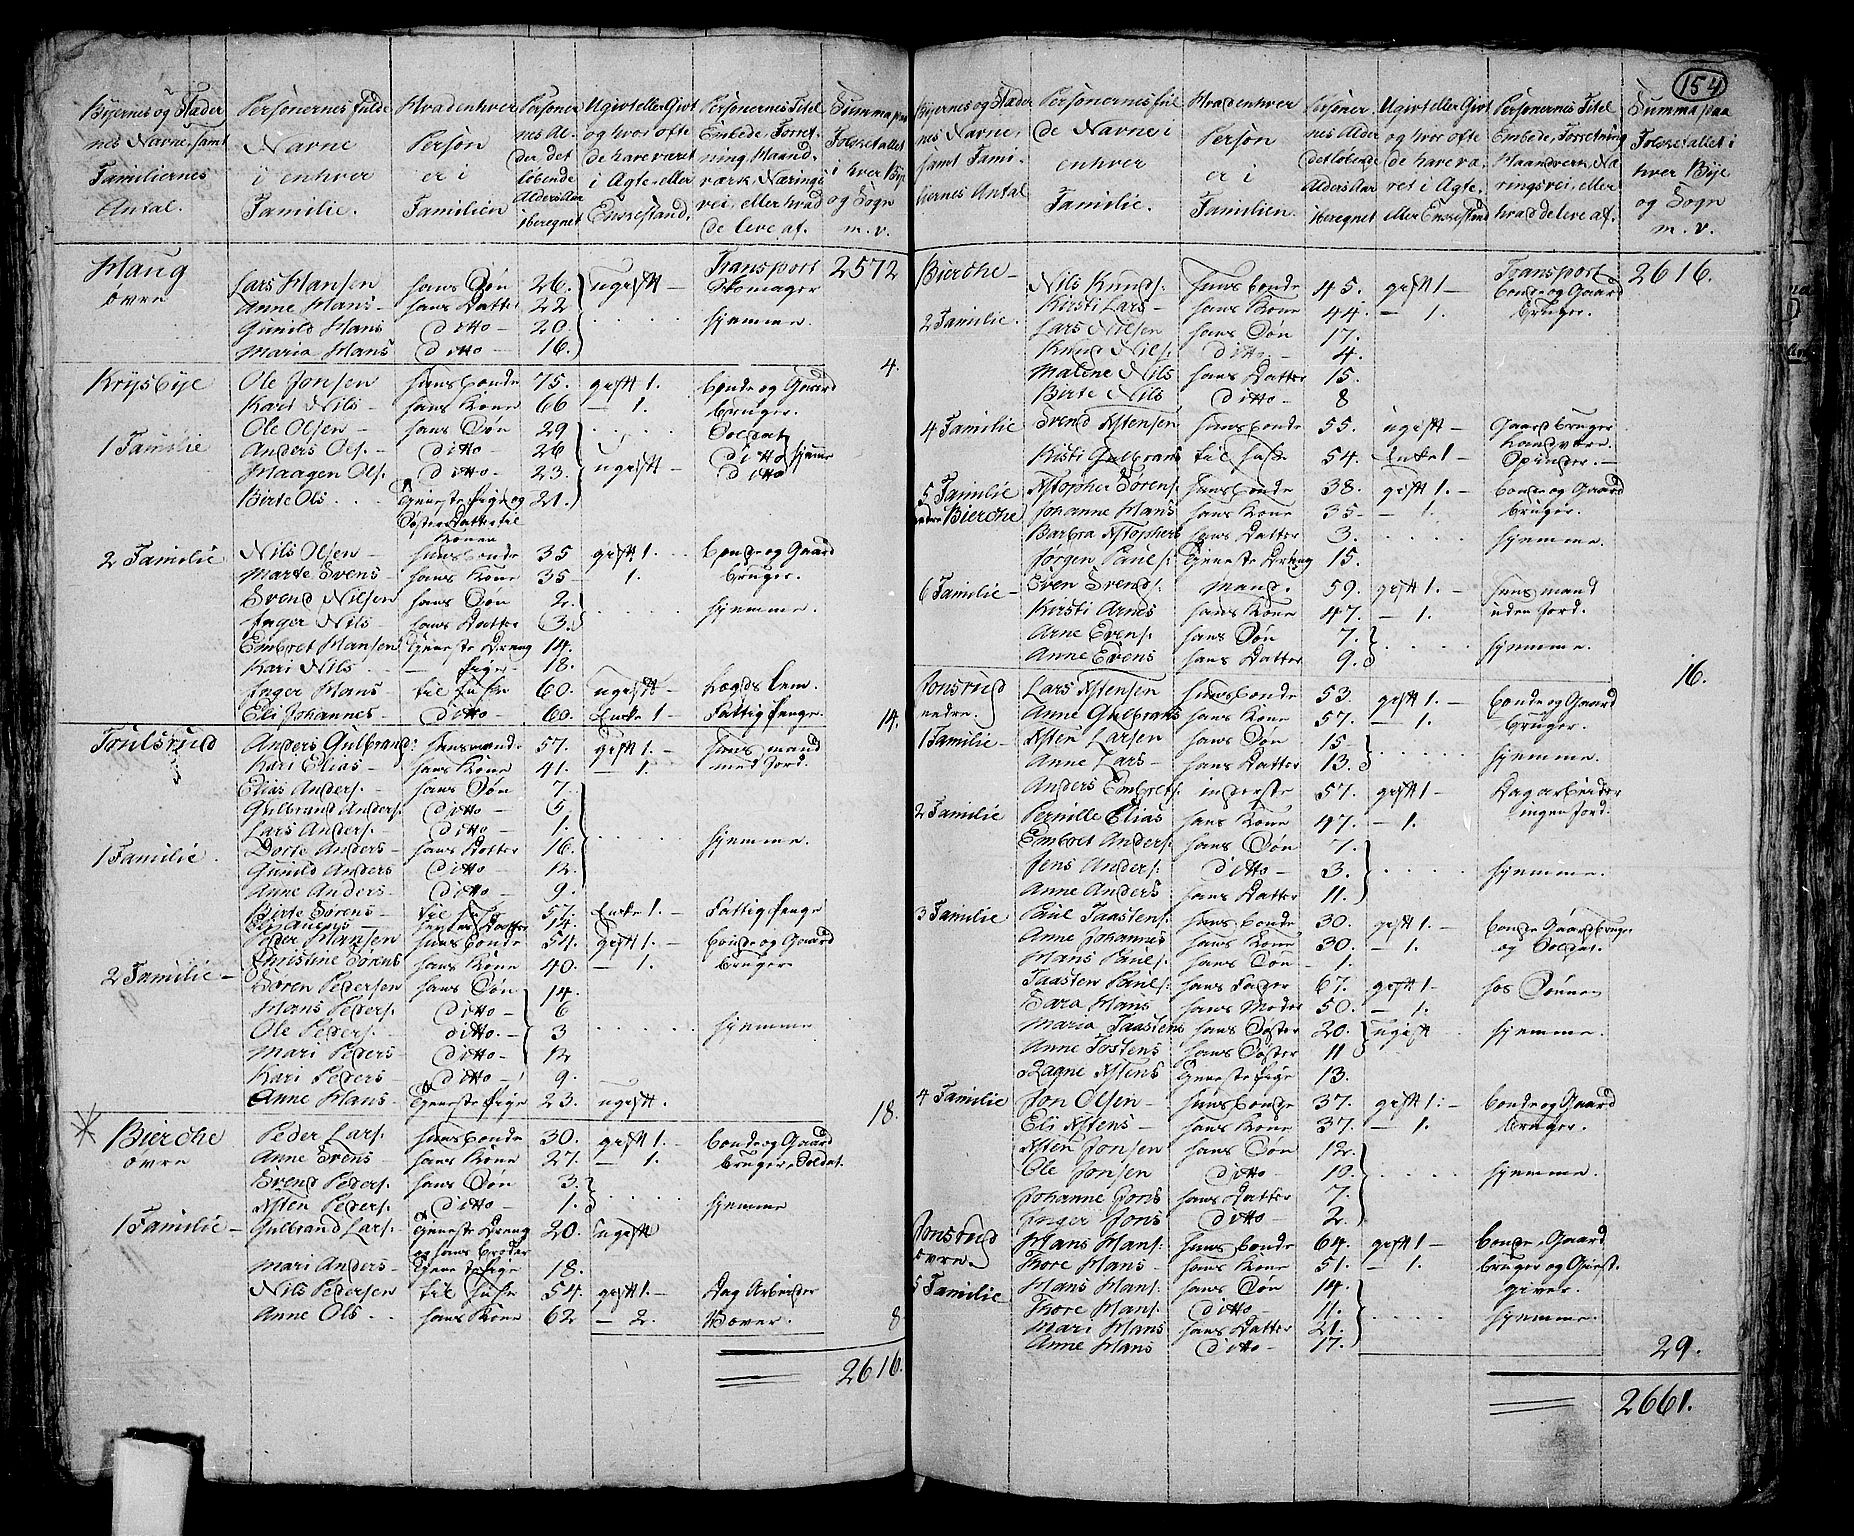 154
Byernes og Stæder
nes Navne, samt
Familiernes
Antal.
Personernes fulde
Navne
i enhver
Familie.
Hvad enhver
Person
er i
Familien
Personer
nes Al-
der det
løbende
Alders Aar
iberegnet
Ugivt eller Givt
og hvor ofte
de have været
i Ægte, eller
Enkestand.
Personernes Titel
Embede, Forret-
ning, Haand-
værk, Nærings-
vei, eller hvad
de leve af.
Summa paa
Folketallet
i hver Bye
og Sogn
m. v.
Haug Transport 2572
øvre Lars Hansen hans Søn 26. ugift – Skomager
Anne Hans – hans Datter 22
Gunild Hans ditto – 20. hjemme.
Maria Hans ditto – 16. 4.
Krysbye Ole Jonsen Huusbonde 75. gift 1. bonde og Gaard
Kari Nils – hans Kone 66 – 1. bruger.
Ole Olsen – hans Søn 29 Soldat
1 Familie Anders Ols. – ditto – 26 ditto hjemme
Haagen Ols: ditto – 23. ugift – ditto
Birte Ols tjeneste Pige og 21.
Søster Datter til
Konen
2 Familie Nils Olsen – huusbonde 35 gift 1. bonde og Gaard
Marte Svens – hans Kone 35 – 1. bruger.
Svend Nilsen hans Søn 2.
Inger Nils – hans Datter 3. hjemme.
Embret Hansen tjeneste Dreng 14.
Kari Nils – – Pige – 18.
Inger Hans – til huse 60. ugift – Lægds lem.
Eli Johannes – ditto – 60. Enke 1 – Fattig penge. 14.
Trulsrud Anders Gulbrand: huusmand 57. gift 1. – huusmand
Kari Elias – hans Kone 41. – 1. med Jord.
Elias Anders: hans Søn 7.
Gulbrand Anders: ditto – 5
Lars Anders: – ditto – 1.
1 Familie. Dorte Anders – hans Datter 16. hjemme.
Gunild Anders ditto – 12.
Anne Anders – ditto – 9.
Birte Sørens – til huse 57. Enke 1. – Fattig penge
hendes Datter 14.
Peder Hansen huusbonde 54. gift 1. – bonde og Gaard
Christine Sørens hans Kone 40. – 1. bruger
2 Familie – Søren Pedersen hans Søn 14.
Hans Peders: ditto – 6
Ole Peders: – ditto – 3 hjemme
Mari Peders – ditto – 12
Kari Peders – ditto – 9.
Anne Hans – tjeneste Pige 23. ugift. 18.
Bierche Peder Lars: huusbonde 30. gift 1. – bonde og Gaard
øvre Anne Svens – hans Kone 27. – 1. bruger, Soldat.
Svend Peders: hans Søn 3.
Asten Peders: ditto – 1. hjemme
1 Familie – Gulbrand Lars: tjeneste Dreng 20. ugift
og hans broder
Mari Anders – tjeneste Pige 18.
Nils Pedersen til huse 54. gift 1. – Dag Arbeider
Anne Ols hans Kone 62 – 2. Væver. 8
2616.
Byernes og Stæder
nes Navne,
samt Fami-
liernes Antal
Personernes ful
de Navne i
enhver
Familie.
Hvad enhver
Person
er i
Familien.
Personer
nes Alder
det løbende
Alders Aar
iberegnet
Ugivt eller Givt
og hvor ofte
de have væ-
ret i Ægte,
eller Enkestand
Personernes Titel
Embede, Forretning
Haandverk, Næ-
ringsvei, eller
hvad de leve af.
Summa paa
Folketallet i
hver Bye
og Sogn
m. v.
Bierche – Transport 2616.
Nils Knuds: Huusbonde 45. gift 1 – bonde og Gaard
Kirsti Lars – hans Kone 44. – 1. bruger.
2 Familie. Lars Nilsen hans Søn 17.
Knud Nils: ditto – 4.
Malene Nils hans Datter 15.
Birte Nils ditto – 8
4 Familie Svend Astensen huusbonde 55. ugift – Gaard bruger
Landvære.
Kisti Gulbrans til huse 54. Enke 1 – Spinder. –
5 Familie Kstopher Sørens: huusbonde 38. gift 1. – bonde og Gaard
nedre Bierche Johanne Hans hans Kone 35 – – 1. bruger.
Barbra Kstophers hans Datter 3. hjemme.
Jørgen Pauls: tjeneste Dreng 15.
6 Familie – Even Svends: mand. 59. gift 1. – huusmand
Kirsti Arnes hans Kone 47. – 1. uden Jord.
Arne Evens: hans Søn 7.
Anne Evens hans Datter 9. hjemme. 16.
Jonsrud Lars Astensen huusbonde 53. gift 1. – bonde og Gaard
nedre. Anne Gulbrans hans Kone 57. – 1. bruger.
1 Familie – Asten Larsen hans Søn 15 –
Anne Lars – hans Datter 13. hjemme.
Anders Embrets: inderste 57. gift 1 – Dagarbeider
2 Familie Pernille Elias hans Kone 47. – 1. ingen Jord.
Embret Anders: hans Søn 7.
Jens Anders: ditto – 3. hjemme.
Anne Anders hans Datter 11.
3 Familie Paul Taastens: huusbonde 30. gift 1. – bonde Gaardbruger
Anne Johannes hans Kone 30. – 1. og Soldat.
Hans Pauls: hans Søn – 1.
Taasten Pauls: hans Fader 67. gift 1 – hos Sønnen
Sara Hans hans Moder 50. – 1.
Maria Taastens hans Søster 20. ugift hjemme.
Anne Tostens hans Søster 11
Ragne Astens tjeneste Pige 13.
4 Familie Jon Olsen – huusbonde 37. gift 1: – bonde og Gaard
Eli Astens – hans Kone 37. – 1. bruger.
Asten Jonsen hans Søn 12.
Ole Jonsen ditto – 10. hjemme.
Johanne Jons hans Datter 7.
Inger Jons ditto – 2.
Jonsrud Hans Hans: huusbonde 64. gift 1 – bonde, Gaard
øvre. Thore Hans – hans Kone 51. – 1. bruger og Giest
5 Familie – Hans Hans: hans Søn 14. giver.
Thore Hans: ditto – 11. hjemme.
Mari Hans hans Datter 21.
Anne Hans ditto – 17. 29.
2661.